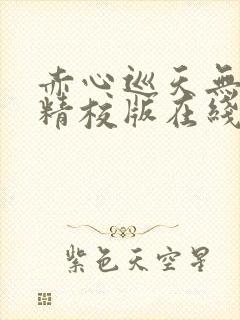 赤心巡天無
精校版在綫
紫色天空星